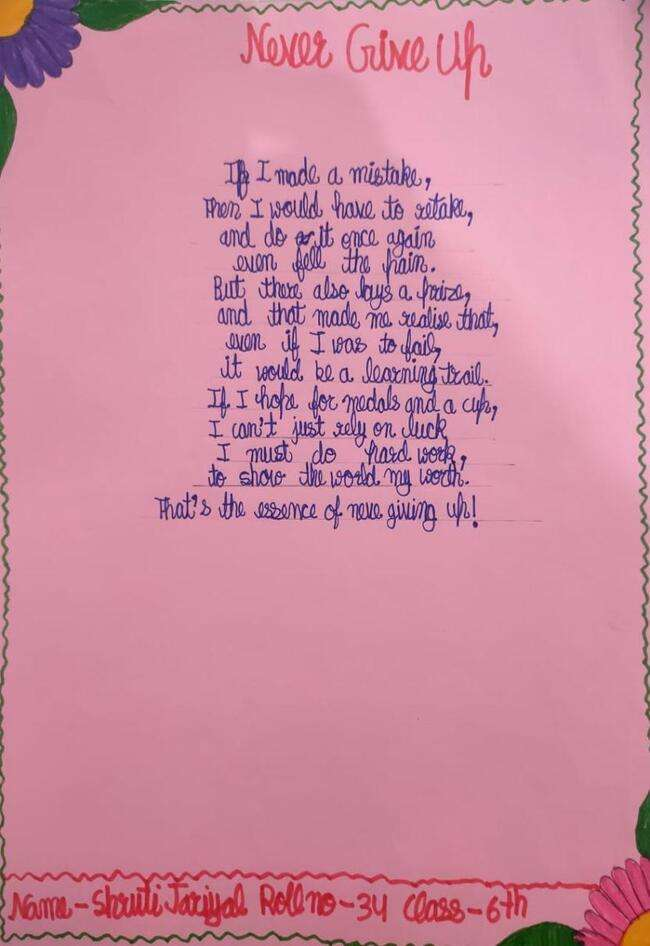 Never Give Up
If I made a mistake,
Then I would have to retake,
and do it once again
even fell the pain.
But there also lays a prize,
and that made me realise that,
even if I was to fail,
it would be a learning trail.
If I hope for medals and a cup,
I can't just rely on luck
I must do hard work,
to show the world my worth.
That's the essence of neve giving up!
Name-Shruti Jariyal Roll no-34 Class-6th